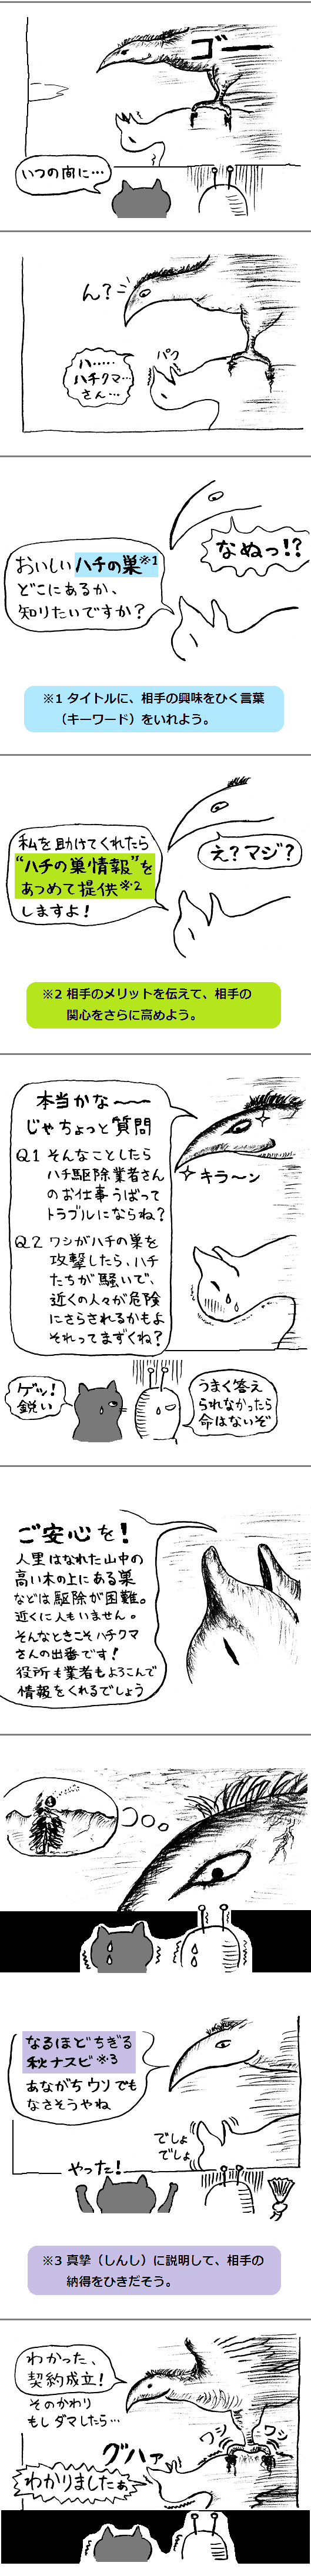 ゴー
いつの間に…
ん?
パク
ハ……
ハチクマ…
さん…
なぬっ!?
おいしいハチの巣※1
どこにあるか、
知りたいですか?
※1 タイトルに、相手の興味をひく言葉
（キーワード）をいれよう。
え?マジ?
私を助けてくれたら
“ハチの巣情報”を
あつめて提供※2
しますよ!
※2 相手のメリットを伝えて、相手の
関心をさらに高めよう。
本当かな〜〜
じゃちょっと質問
Q.1 そんなことしたら
ハチ駆除業者さん
のお仕事うばって
トラブルにならね?
Q.2 ワシがハチの巣を
攻撃したら、ハチ
たちが騒いで、
近くの人々が危険
にさらされるかもよ
それってまずくね?
キラ〜ン
ゲッ!
鋭い
うまく答え
られなかったら
命はないぞ
ご安心を!
人里はなれた山中の
高い木の上にある巣
などは駆除が困難。
近くに人もいません。
そんなときこそハチクマ
さんの出番です!
役所も業者もよろこんで
情報をくれるでしょう
なるほどちぎる
秋ナスビ※3
あながちウソでも
なさそうやね
でしょ
でしょ
やった!
※3 真摯（しんし）に説明して、相手の
納得をひきだそう。
わかった、
契約成立!
そのかわり
もしダマしたら…
ワシ
ワシ
グハァ
わかりましたぁ